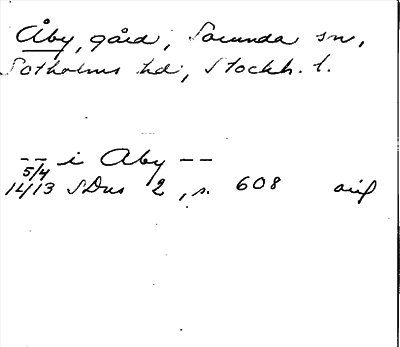 Åby, gård, Sorunda sn,
Sotholms hd, Stockh. l.
-- i Aby --
5/4
1413 SDns 2, s. 608 avs